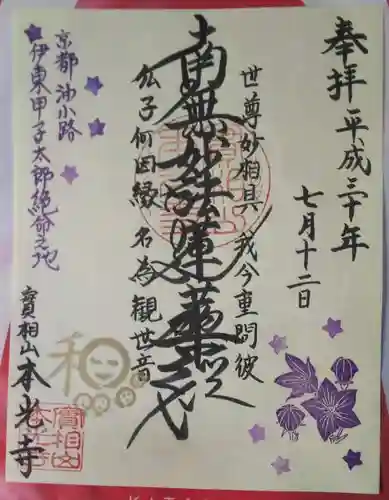 奉拝 平成三十年
七月十二日
世尊妙相具 我今重問彼
南無妙法蓮華経
仏子何因縁 名為観世音
京都油小路
伊東甲子太郎絶命之地
實相山 本光寺
和
實相山
本光寺